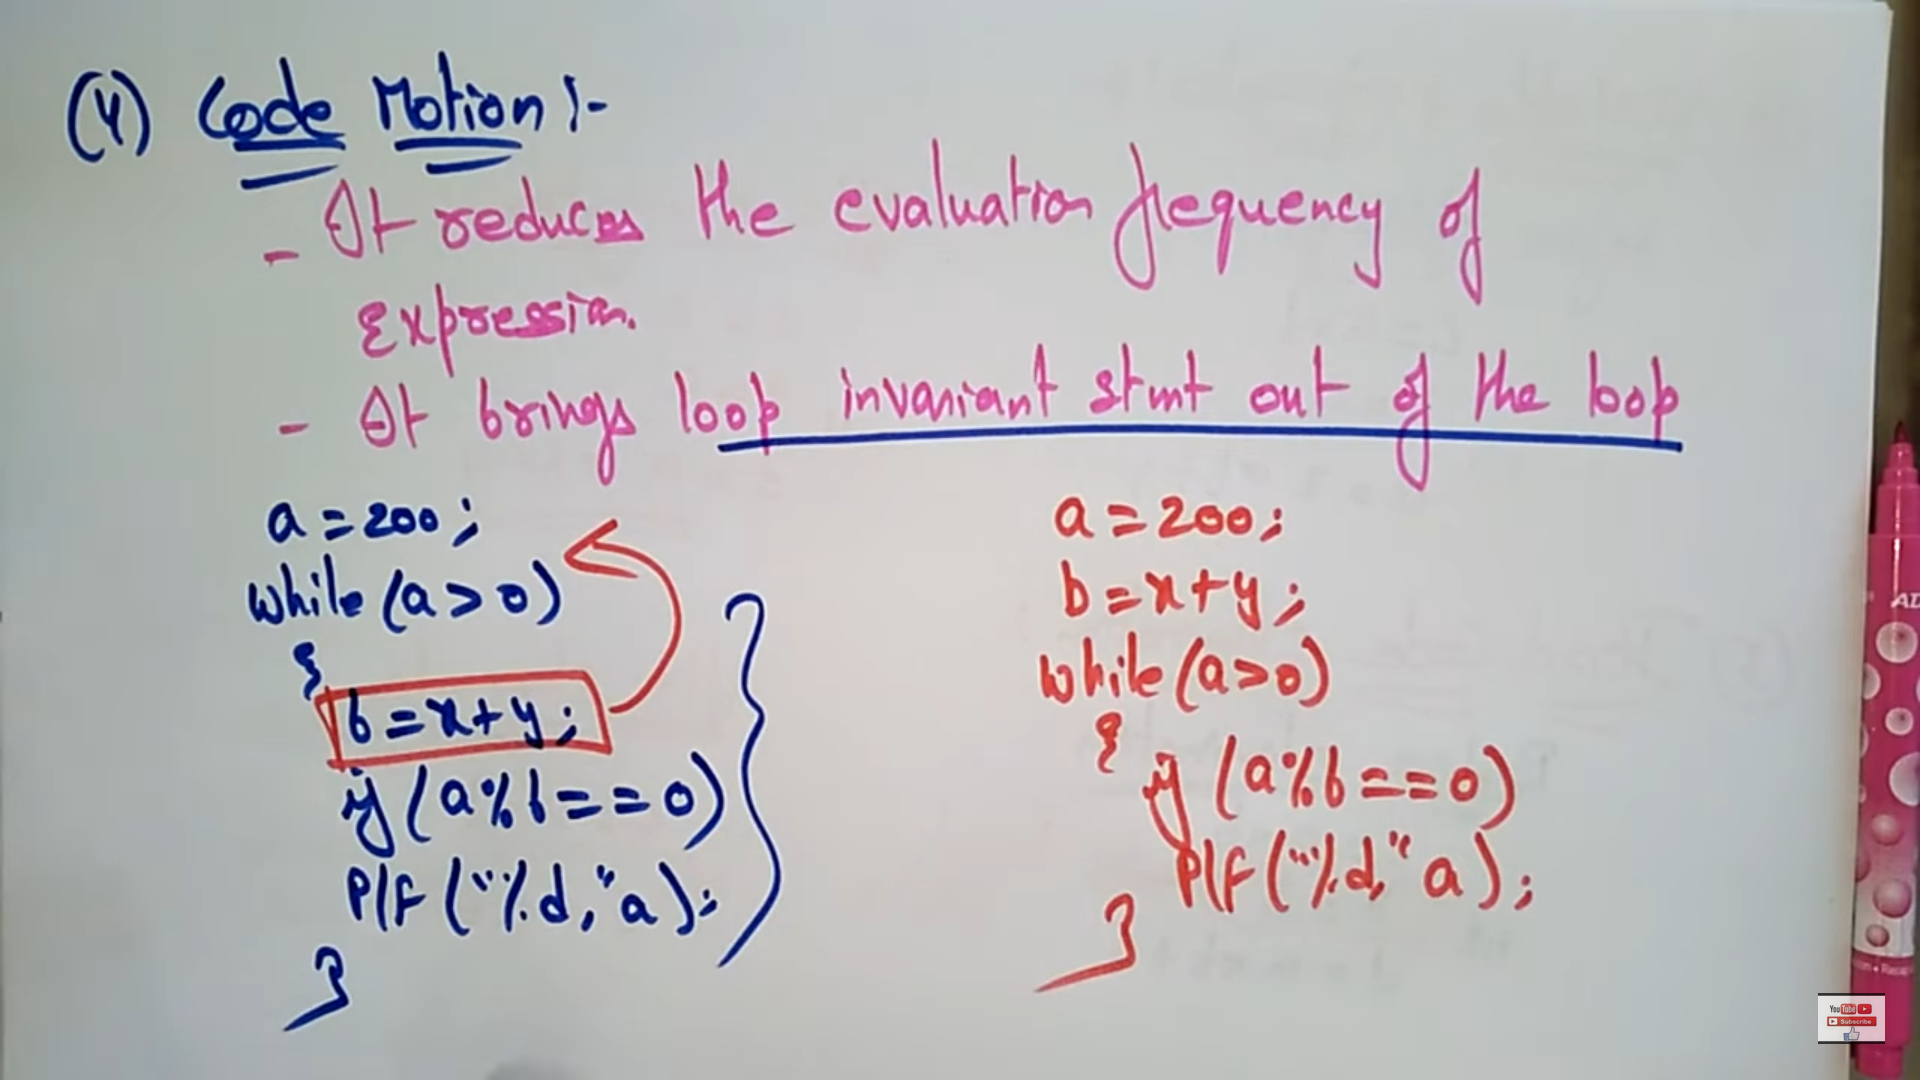 (4) Code Motion :-
- It reduces the evaluation frequency of
Expression.
- It brings loop invariant stmt out of the loop
a = 200;
while (a > 0)
{
b = x + y;
if (a % b == 0)
P/F ("%d," a);
}
a = 200;
b = x + y;
while (a > 0)
{
if (a % b == 0)
P/F ("%d," a);
}
AD
YouTube
Subscribe